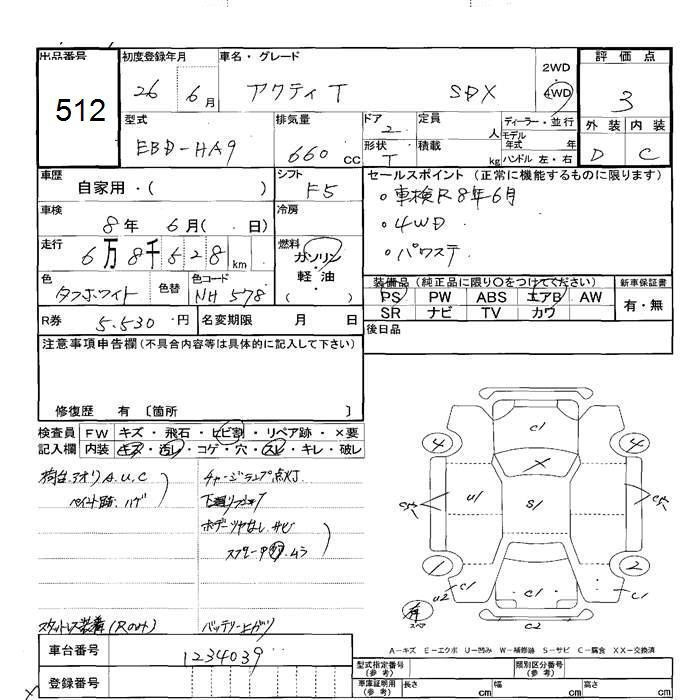 出品番号 初度登録年月 車名・グレード 評価点
512 26 6月 アクティT SDX 2WD 4WD 3
外装 内装
D C
型式 排気量 ドア 定員 ディーラー・並行
EBD-HA9 660cc 2 人 モデル年式 年
形状 積載 ハンドル 左・右
T kg
車歴 シフト セールスポイント (正常に機能するものに限ります)
自家用・( ) F5 ○車検R8年6月
車検 冷房 ○4WD
8年 6月( 日) ○パワステ
走行 燃料
6万8千528km ガソリン・軽油
( )
色 色替 色コード 装備品(純正品に限り○をつけてください) 新車保証書
タフホワイト NH578 PS PW ABS エアB AW 有・無
SR ナビ TV カワ
R券 5.530円 名変期限 月 日 後日品
注意事項申告欄(不具合内容等は具体的に記入して下さい)
修復歴 有 〔箇所 〕
検査員 FW キズ・飛石・ヒビ割・リペア跡・×要
記入欄 内装 キズ・汚レ・コゲ・穴・スレ・キレ・破レ
荷台.アオリA.U.C チャージランプ点灯
ペイント跡.ハゲ 下廻りサビ
ボデーツヤなし.サビ
ムラ
(Rのみ) バッテリー上ガリ
C1
4 4
X
U1 S1
1 2
U2 C1 C1 C1
C2
A-キズ E-エクボ U-凹み W-補修跡 S-サビ C-腐食 XX-交換済
車台番号 1234039
型式指定番号(参考) 類別区分番号(参考)
登録番号 車庫証明用(参考) 長さ cm 幅 cm 高さ cm